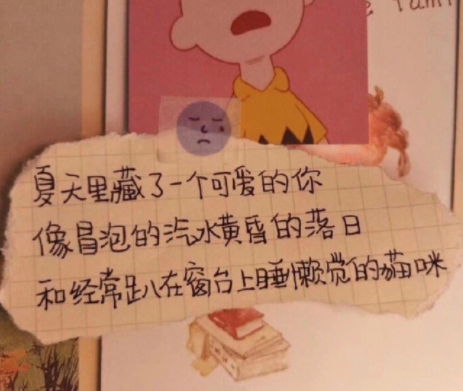 夏天里藏了一个可爱的你
像冒泡的汽水黄昏的落日
和经常趴在窗台上睡懒觉的猫咪